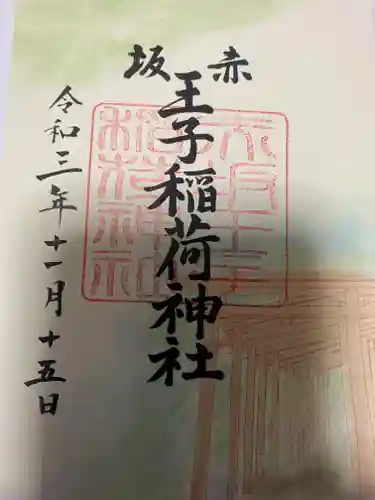 赤坂
王子稲荷神社
令和三年十一月十五日